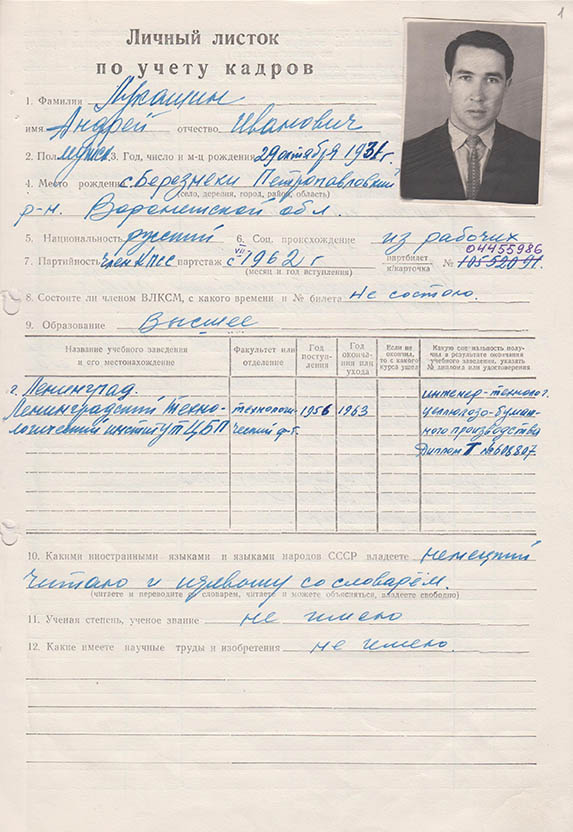 1
Личный листок
по учету кадров
1. Фамилия Лукашин
имя Андрей отчество Иванович
2. Пол мужск. 3. Год, число и м-ц рождения 29 октября 1931 г.
4. Место рождения с. Березнеки Петропавловский
(село, деревня, город, район, область)
р-н. Воронежской обл.
5. Национальность русский 6. Соц. происхождение из рабочих
7. Партийность член КПСС партстаж с VII 1962 г партбилет к/карточка № 04455986
(месяц и год вступления)
8. Состоите ли членом ВЛКСМ, с какого времени и № билета не состою.
9. Образование Высшее
Название учебного заведения и его местонахождение
Факультет или отделение
Год поступления
Год окончания или ухода
Если не окончил, то с какого курса ушел
Какую специальность получил в результате окончания учебного заведения, указать № диплома или удостоверения
г. Ленинград. инженер-технолог.
Ленинградский Техно- технологи- 1956 1963 целлюлозо-бумаж-
логический институт ЦБП ческий ф-т. ного производства
Диплом Т № 608807
10. Какими иностранными языками и языками народов СССР владеете немецкий
читаю и перевожу со словарём.
(читаете и переводите со словарем, читаете и можете объясняться, владеете свободно)
11. Ученая степень, ученое звание не имею
12. Какие имеете научные труды и изобретения не имею.